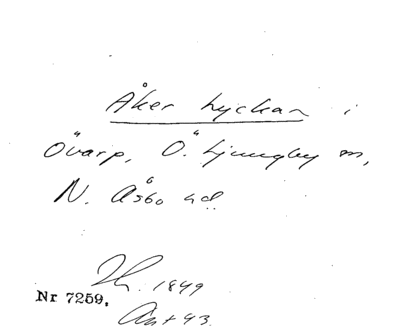 Åker Lyckan i
Övarp, Ö. Ljungby sn,
N. Åsbo hd
1849
Nr 7259.
Ant 43